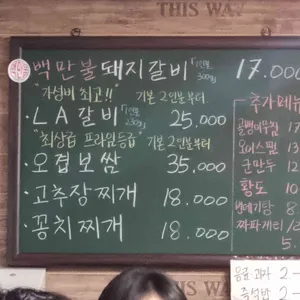 THIS WAY
백만불돼지갈비 1인분 300g 17.000
"가성비 최고!!" 기본 2인분부터
·LA갈비 1인분 250g 25,000
"최상급 프라임등급" 기본 2인분부터
·오겹보쌈 35,000
·고추장찌개 18.000
·꽁치찌개 18.000
추가메뉴
골뱅이무침 17
오이스팸 13
군만두 12
황도 10
번데기탕 8
짜파게티 12
5.
음료 과자 2-
즉석밥 2-
THIS WAY